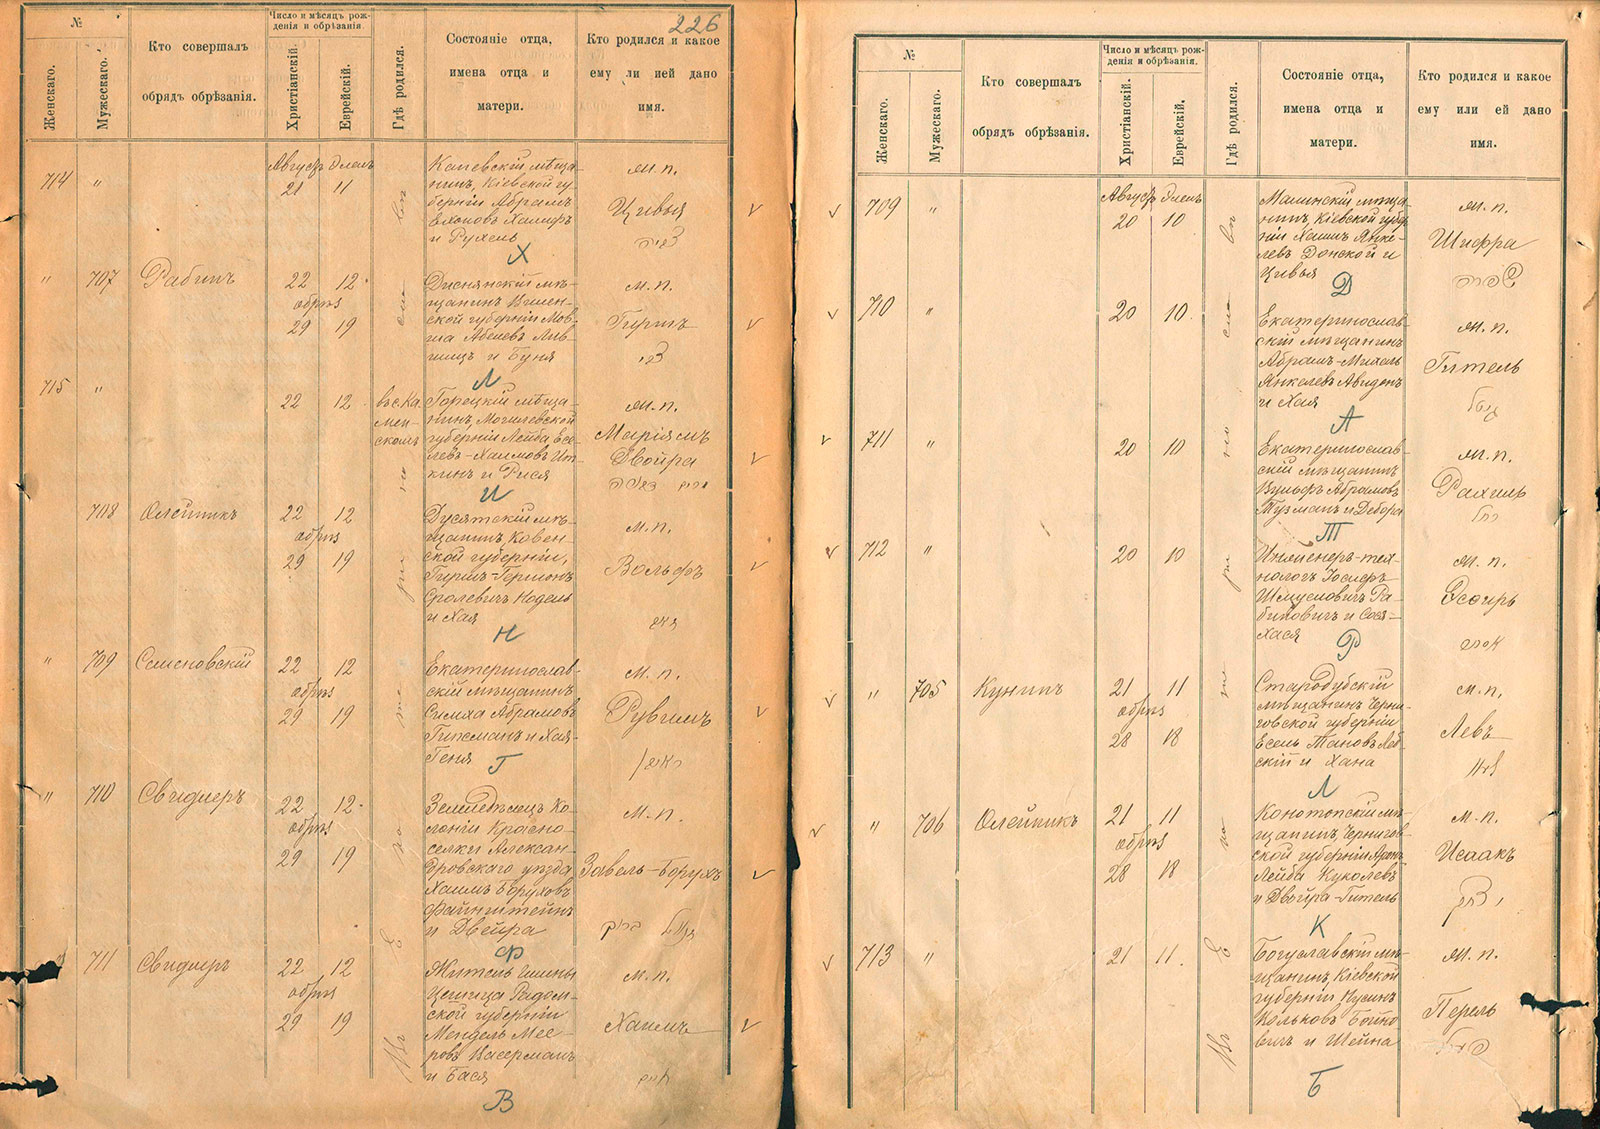 226
№
Женскаго.
Мужескаго.
Кто совершалъ
обрядъ обрѣзанія.
Число и мѣсяцъ рож-
денія и обрѣзанія.
Христіанскій.
Еврейскій.
Гдѣ родился.
Состояніе отца,
имена отца и
матери.
Кто родился и какое
ему ли ией дано
имя.
714 "
Август Элелъ
21 11
Каневскій мѣща-
нинъ, Кіевской гу-
берніи Абрамъ
Халифъ
и Рухель
ж.п.
Цивья
צביה
Х
" 707 Рабинъ
22 12
обрѣз
29 19
Диснянскій мѣ-
щанинъ Вилен-
ской губерніи Мов-
ша Абелевъ Лив-
шицъ и Буня
м.п.
Гиршъ
צבי
Л
715 "
22 12
въ с. Ка-
мен-
скомъ
Горецкій мѣща-
нинъ, Могилевской
губерніи Лейба Есе-
левъ-Хаимовъ Ит-
кинъ и Рися
ж.п.
Маріямъ
Двойра
מרים דבורה
И
708 Олейникъ
22 12
обрѣз
29 19
Дусятскій мѣ-
щанинъ Ковен-
ской губерніи,
Гиршъ-Германъ
Сролевичъ Нодель
и Хая
м.п.
Вольфъ
וואלף
Н
" 709 Семеновскій
22 12
обрѣз
29 19
Екатеринослав-
скій мѣщанинъ
Симха Абрамовъ
Гихманъ и Хая-
Геня
м.п.
Рувимъ
ראובן
Г
" 710 Свидлеръ
22 12
обрѣз
29 19
Земледѣлецъ ко-
лоніи Красно-
селки Алексан-
дровскаго уѣзда
Хаимъ Боруховъ
Файнштейнъ
и Двейра
м.п.
Завель-Борухъ
ברוך
Ф
" 711 Свидлеръ
22 12
обрѣз
29 19
Житель гмины
Радом-
ской губерніи
Мендель Мее-
ровъ Васерманъ
и Бася
м.п.
Хаимъ
חיים
В
№
Женскаго.
Мужескаго.
Кто совершалъ
обрядъ обрѣзанія.
Число и мѣсяцъ рож-
денія и обрѣзанія.
Христіанскій.
Еврейскій.
Гдѣ родился.
Состояніе отца,
имена отца и
матери.
Кто родился и какое
ему или ей дано
имя.
709 "
Август Элелъ
20 10
Малинскій мѣща-
нинъ, Кіевской губер-
ніи Хаимъ Янке-
левъ Донской и
Цивья
ж.п.
Шифра
שפרה
Д
710 "
20 10
Екатеринослав-
скій мѣщанинъ
Абрамъ-Михель
Янкелевъ Авиденъ
и Хая
ж.п.
Гитель
גיטל
А
711 "
20 10
Екатеринослав-
скій мѣщанинъ
Вульфъ Абрамовъ
Тузманъ и Дебора
ж.п.
Рахиль
רחל
Т
712 "
20 10
Инженеръ-тех-
нологъ Іосифъ
Шмуеловичъ Ра-
биновичъ и Сося-
Хася
ж.п.
Эсѳирь
אסתר
Р
" 705 Кунинъ
21 11
обрѣз
28 18
Стародубскій
мѣщанинъ Черни-
говской губерніи
Есель
и Хана
м.п.
Левъ
Л
" 706 Олейникъ
21 11
обрѣз
28 18
Конотопскій мѣ-
щанинъ, Чернигов-
ской губерніи Аронъ
Лейба Куколевъ
и Двойра-Гитель
м.п.
Исаакъ
יצחק
К
713 "
21 11
Богуславскій мѣ-
щанинъ, Кіевской
губерніи Нусинъ
Волковъ Бойко-
вичъ и Шейна
ж.п.
Перель
פערל
Б